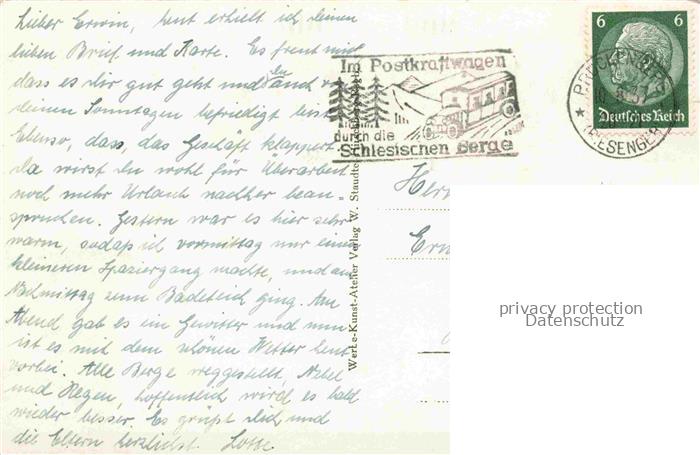 Lieber Erwin, heut erhielt ich deinen
lieben Brief und Karte. Es freut mich
dass es dir gut geht und du auch
deinen Sonntagen befriedigt bist.
Ebenso, dass das Geschäft klappert.
da wirst du wohl für Überarbeit
noch mehr Urlaub nachher bean-
spruchen. Gestern war es hier sehr
warm, sodaß ich vormittag nur einen
kleineren Spaziergang machte, und am
Nachmittag zum Badeteich ging. Am
Abend gab es ein Gewitter und nun
ist es mit dem schönen Wetter heut
vorbei. Alle Berge weggestellt, Nebel
und Regen, hoffentlich wird es bald
wieder besser. Es grüßt dich und
die Eltern herzlichst Lotte
Werke-Kunst-Atelier Verlag W. Staudte
Im Postkraftwagen
durch die
Schlesischen Berge
6 6
Deutsches Reich
BRÜCKENBERG
37
(RIESENGEB
Herr
Erw
privacy protection
Datenschutz